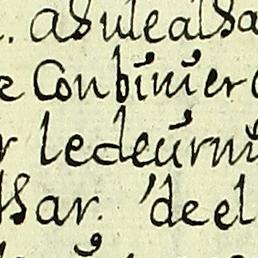 . asulealsa
e Conbinier
r ledeurni
lsar. deel